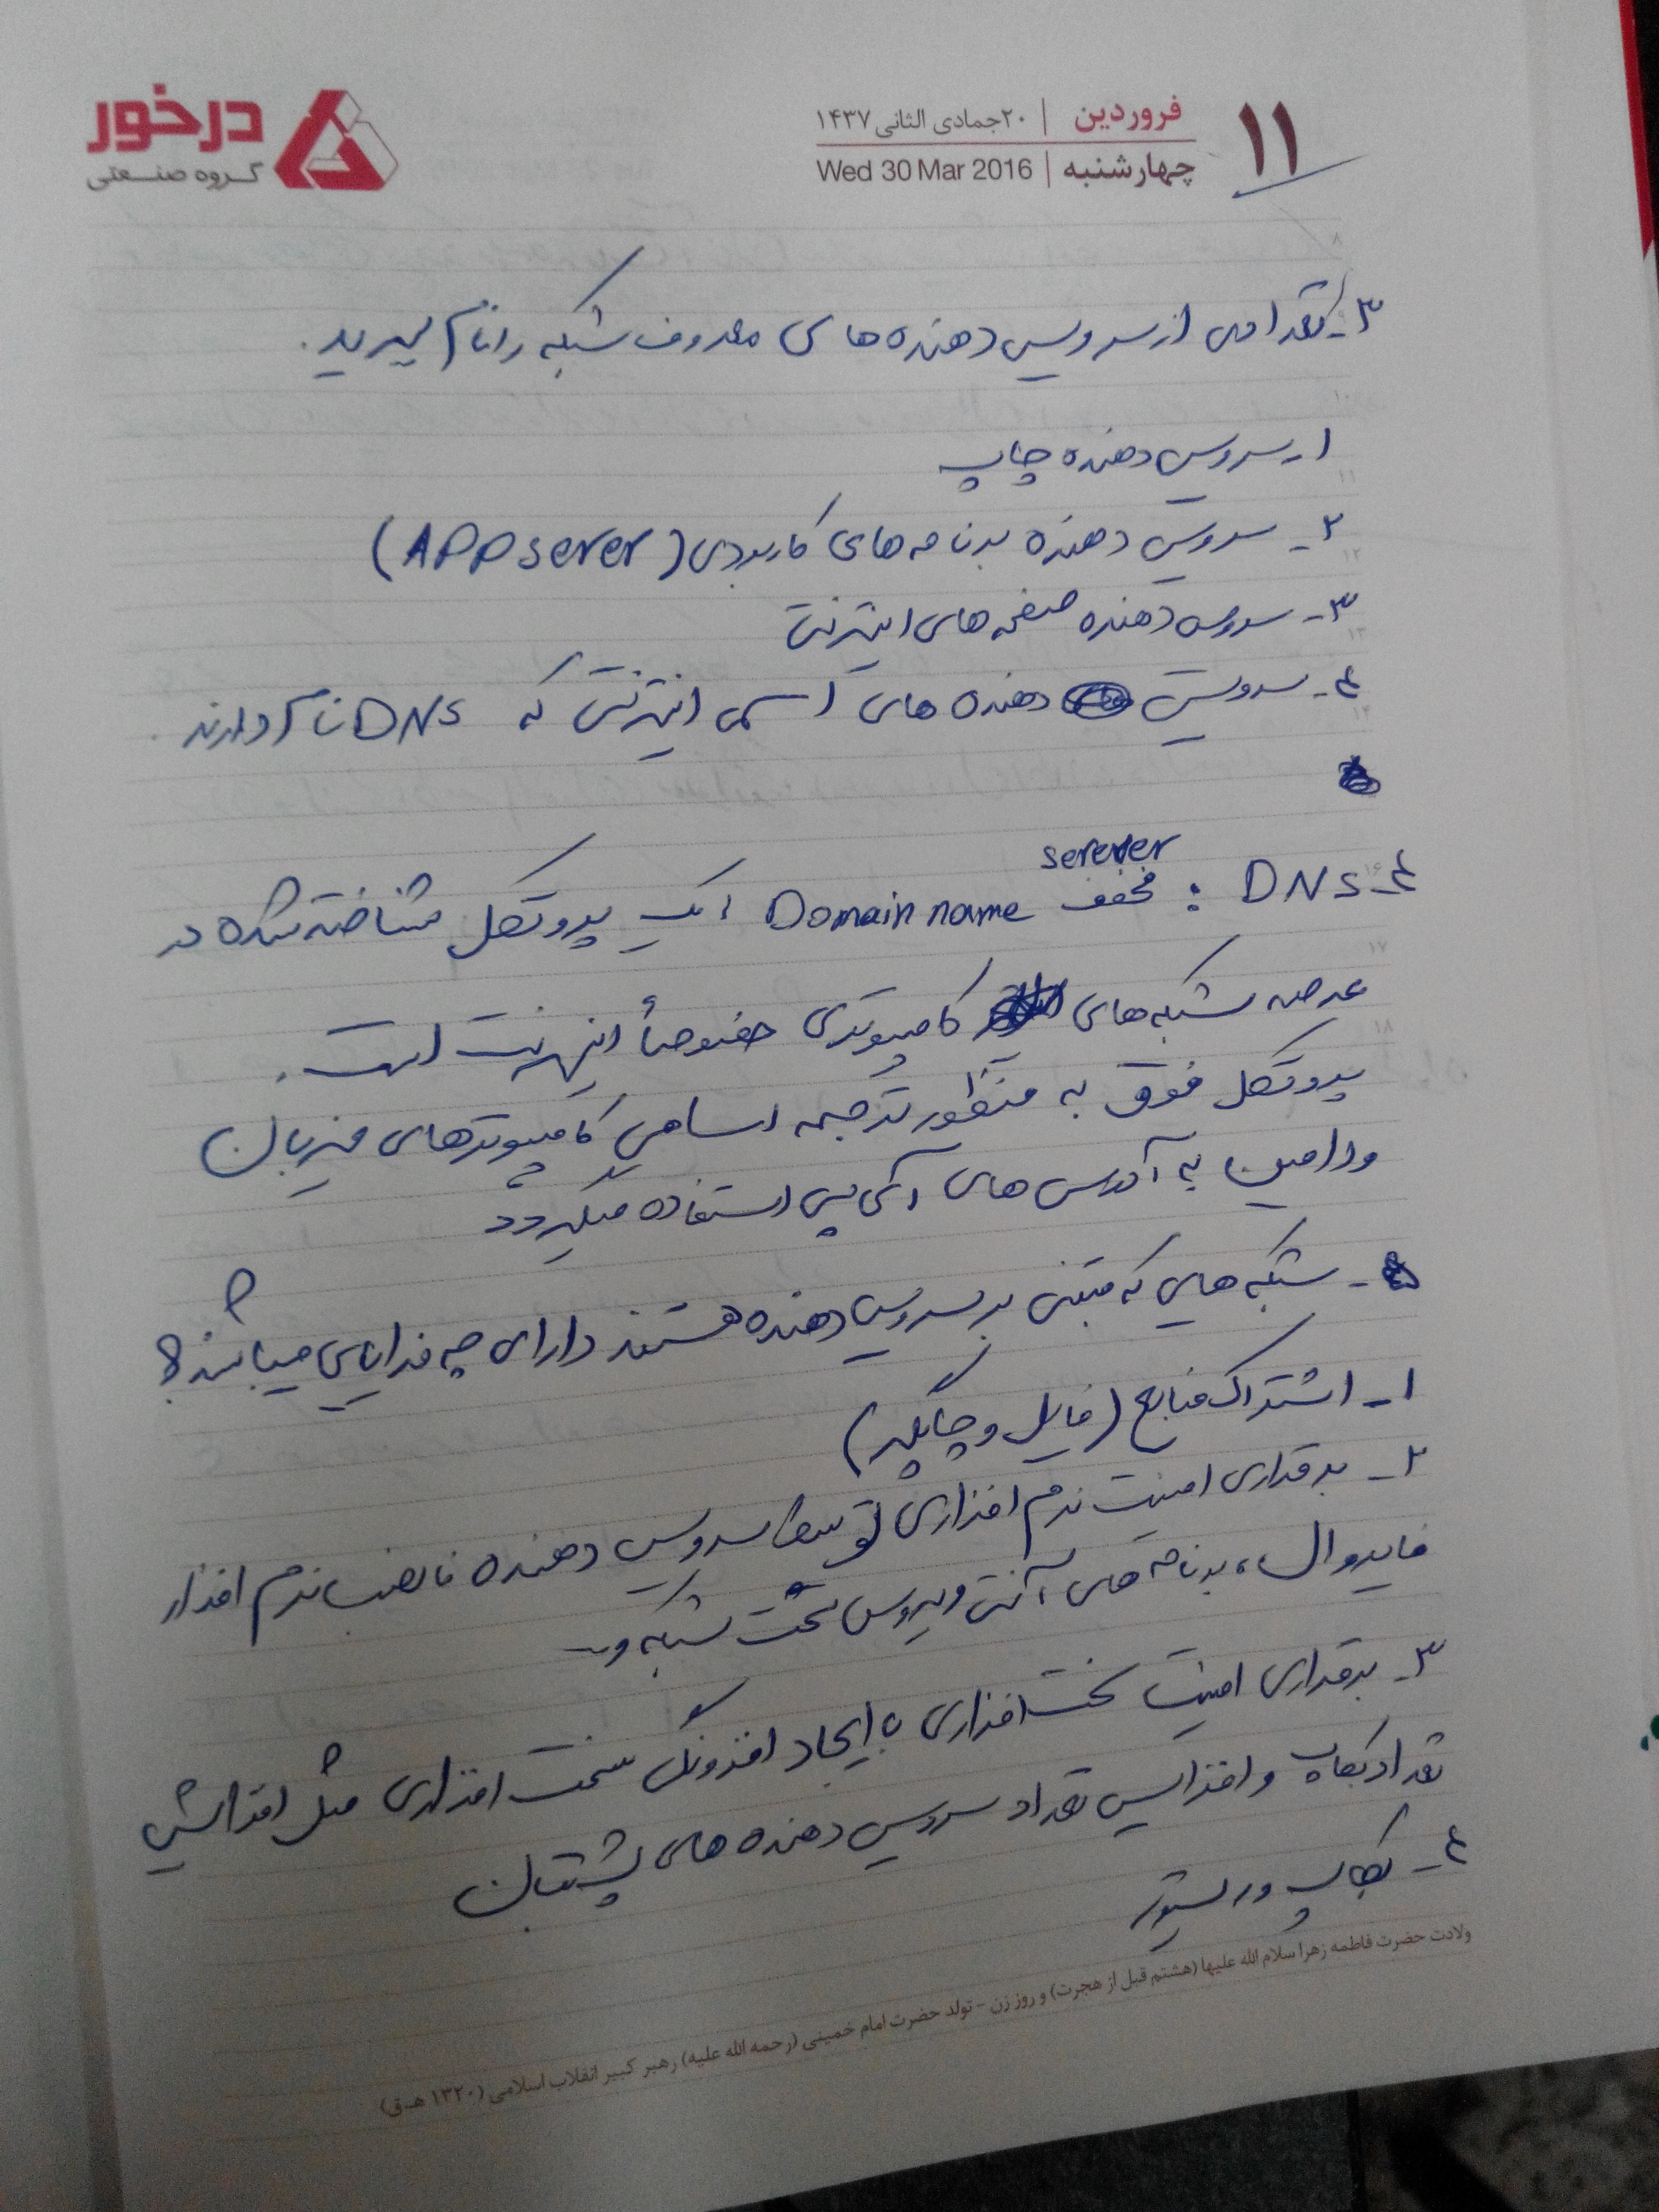 درخور
گروه صنعتی
۱۱
فروردین | ۲۰جمادی الثانی ۱۴۳۷
چهارشنبه | Wed 30 Mar 2016
۳_ تعدادی از سرویس دهنده های معروف شبکه را نام ببرید.
۱_ سرویس دهنده چاپ
۲_ سرویس دهنده برنامه های کاربردی (APP serer)
۳_ سرویس دهنده صفحه های اینترنتی
۴_ سرویس دهنده های اسمی اینترنتی که DNS نام دارند.
serever
۴_ DNS : مخفف Domain name یک پروتکل شناخته شده در
عرصه شبکه های کامپیوتری خصوصاً اینترنت است.
پروتکل فوق به منظور ترجمه اسامی کامپیوترهای میزبان
ودامین به آدرس های آی پی استفاده میگردد
۵_ شبکه های که مبتنی بر سرویس دهنده هستند دارای چه مزایای میباشند؟
۱_ اشتراک منابع (فایل و چاپگر)
۲_ برقراری امنیت نرم افزاری توسط سرویس دهنده با نصب نرم افزار
فایروال، برنامه های آنتی ویروس تحت شبکه و...
۳_ برقراری امنیت سخت افزاری با ایجاد افزونگی سخت افزاری مثل افزایش
تعداد بکاپ و افزایش تعداد سرویس دهنده های پشتیبان
۴_ بکاپ و ریستور
ولادت حضرت فاطمه زهرا سلام الله علیها (هشتم قبل از هجرت) و روز زن - تولد حضرت امام خمینی (رحمه الله علیه) رهبر کبیر انقلاب اسلامی (۱۳۲۰ هـ.ق)